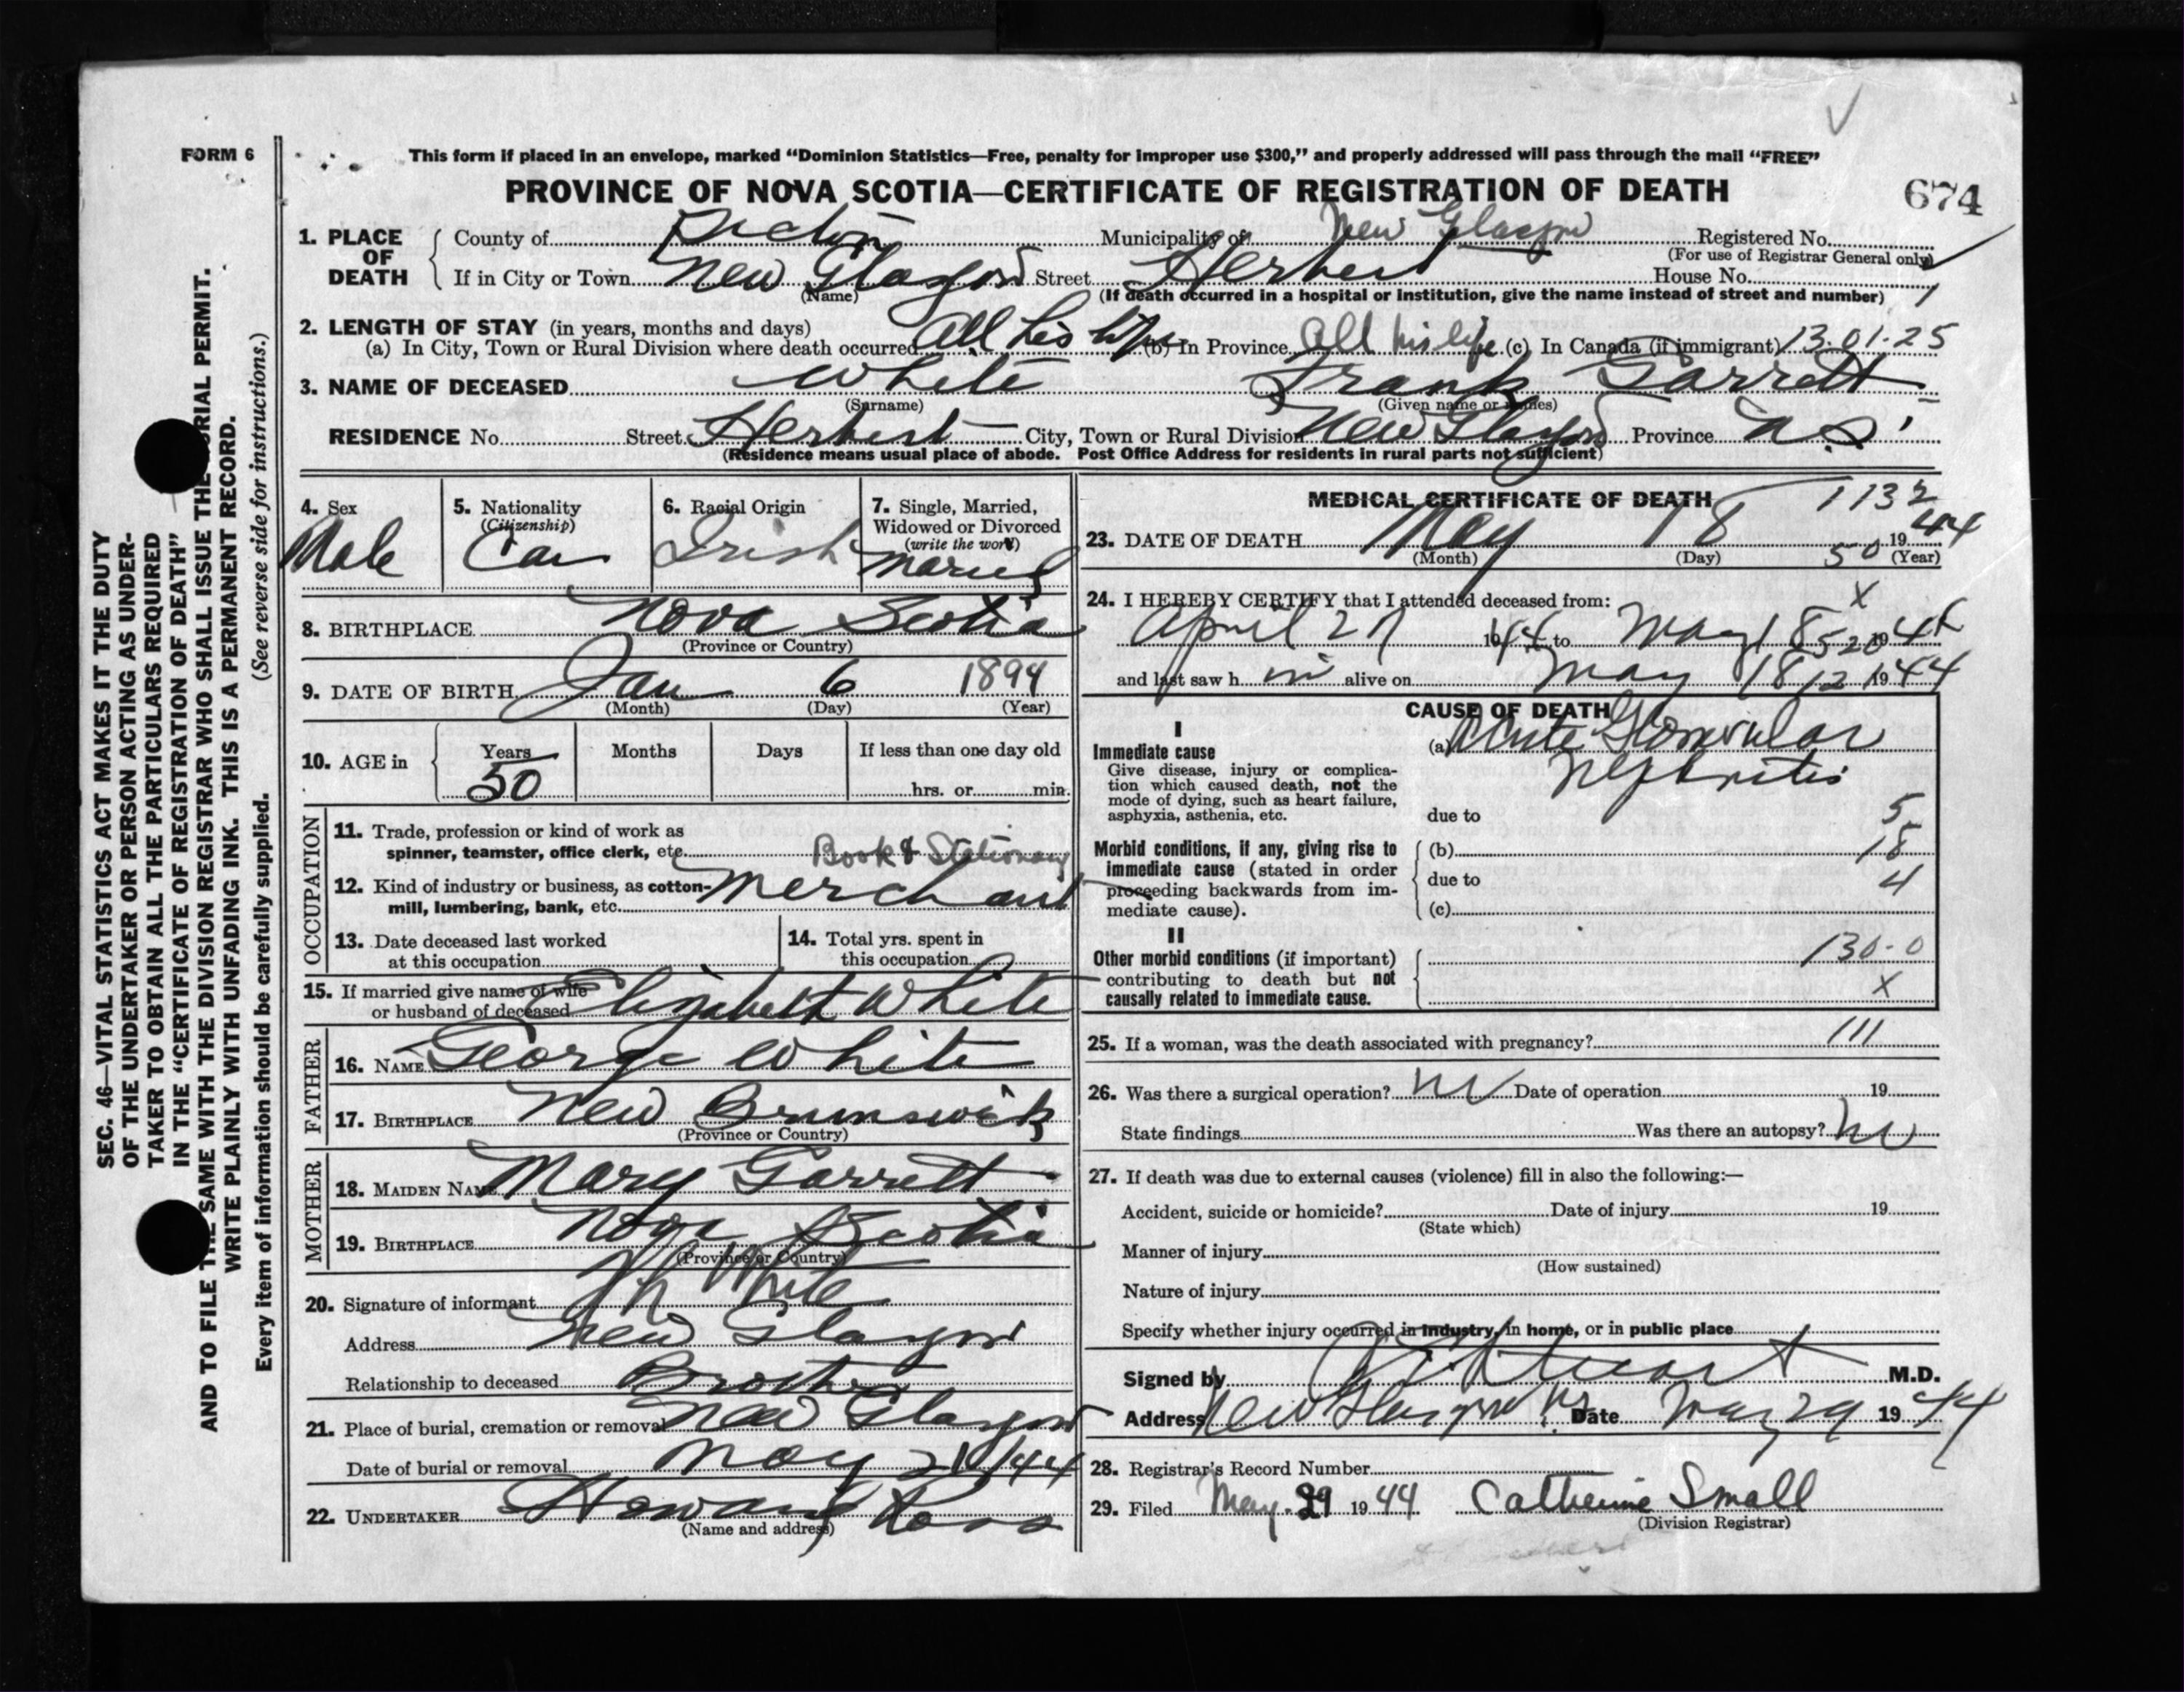 FORM 6
This form if placed in an envelope, marked “Dominion Statistics—Free, penalty for improper use $300,” and properly addressed will pass through the mail “FREE”
PROVINCE OF NOVA SCOTIA—CERTIFICATE OF REGISTRATION OF DEATH
674
1. PLACE OF DEATH County of Pictou Municipality of New Glasgow Registered No.
(For use of Registrar General only)
If in City or Town New Glasgow Street Herbert House No.
(Name) (If death occurred in a hospital or institution, give the name instead of street and number)
2. LENGTH OF STAY (in years, months and days)
(a) In City, Town or Rural Division where death occurred All his life (b) In Province All his life (c) In Canada (if immigrant) 13.01.25
3. NAME OF DECEASED White Frank Garrett
(Surname) (Given name or names)
RESIDENCE No. Street Herbert City, Town or Rural Division New Glasgow Province N.S.
(Residence means usual place of abode. Post Office Address for residents in rural parts not sufficient)
4. Sex 5. Nationality 6. Racial Origin 7. Single, Married,
(Citizenship) Widowed or Divorced
(write the word)
Male Can Irish Married
8. BIRTHPLACE Nova Scotia
(Province or Country)
9. DATE OF BIRTH Jan 6 1894
(Month) (Day) (Year)
10. AGE in Years Months Days If less than one day old
50 hrs. or min.
OCCUPATION
11. Trade, profession or kind of work as
spinner, teamster, office clerk, etc. Book & Stationary
12. Kind of industry or business, as cotton-
mill, lumbering, bank, etc. Merchant
13. Date deceased last worked
at this occupation
14. Total yrs. spent in
this occupation
15. If married give name of wife
or husband of deceased Elizabeth White
FATHER
16. NAME George White
17. BIRTHPLACE New Brunswick
(Province or Country)
MOTHER
18. MAIDEN NAME Mary Garrett
19. BIRTHPLACE Nova Scotia
(Province or Country)
20. Signature of informant White
Address New Glasgow
Relationship to deceased Brother
21. Place of burial, cremation or removal New Glasgow
Date of burial or removal May 21/44
22. UNDERTAKER Howard Ross
(Name and address)
MEDICAL CERTIFICATE OF DEATH 1132
23. DATE OF DEATH May 18 19 44
(Month) (Day) 50 (Year)
24. I HEREBY CERTIFY that I attended deceased from: X
April 27 1944 to May 18 520 19 44
and last saw h im alive on May 18 12 19 44
CAUSE OF DEATH
I
Immediate cause (a) Acute Glomerular
Nephritis
Give disease, injury or complica-
tion which caused death, not the
mode of dying, such as heart failure,
asphyxia, asthenia, etc. due to 5
Morbid conditions, if any, giving rise to (b) 18
immediate cause (stated in order due to 4
proceeding backwards from im-
mediate cause). (c)
II
Other morbid conditions (if important) 130-0
contributing to death but not
causally related to immediate cause. X
25. If a woman, was the death associated with pregnancy? 111
26. Was there a surgical operation? no Date of operation 19
State findings Was there an autopsy? no
27. If death was due to external causes (violence) fill in also the following:—
Accident, suicide or homicide? Date of injury 19
(State which)
Manner of injury
(How sustained)
Nature of injury
Specify whether injury occurred in industry, in home, or in public place
Signed by Stuart M.D.
Address New Glasgow N.S. Date May 29 19 44
28. Registrar’s Record Number
29. Filed May 29 19 44 Catherine Small
(Division Registrar)
SEC. 46—VITAL STATISTICS ACT MAKES IT THE DUTY
OF THE UNDERTAKER OR PERSON ACTING AS UNDER-
TAKER TO OBTAIN ALL THE PARTICULARS REQUIRED
IN THE “CERTIFICATE OF REGISTRATION OF DEATH”
AND TO FILE THE SAME WITH THE DIVISION REGISTRAR WHO SHALL ISSUE THE BURIAL PERMIT.
WRITE PLAINLY WITH UNFADING INK. THIS IS A PERMANENT RECORD.
Every item of information should be carefully supplied. (See reverse side for instructions.)